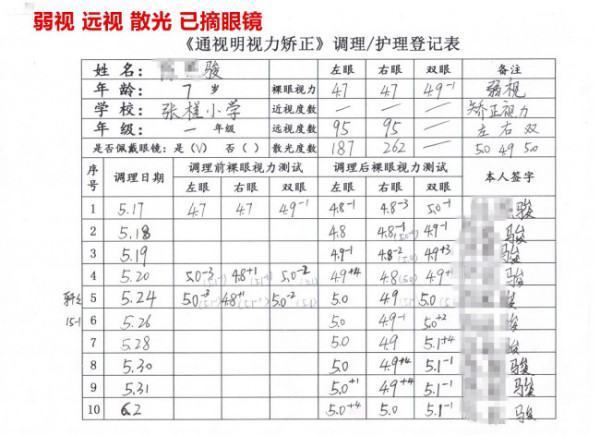 弱视 远视 散光 已摘眼镜
《通视明视力矫正》调理/护理登记表
姓名: 骏 左眼 右眼 双眼 备注
年龄: 7 岁 裸眼视力 4.7 4.7 4.9⁻¹ 弱视
学校: 张槎小学 近视度数 — — — 矫正视力
年级: 一 年级 远视度数 95 95 — 左 右 双
是否佩戴眼镜: 是(√) 否( ) 散光度数 187 262 — 5.0 4.9 5.0
序号 调理日期 调理前裸眼视力测试 调理后裸眼视力测试 本人签字
左眼 右眼 双眼 左眼 右眼 双眼
1 5.17 4.7 4.7 4.9⁻¹ 4.8⁻¹ 4.8⁻³ 5.0⁻¹ 骏
2 5.18 4.8 4.8⁻¹ 4.9⁻¹ 骏
3 5.19 4.9⁻¹ 4.8⁻² 4.9⁺³ 骏
4 5.20 5.0⁻³ 4.8⁺¹ 5.0⁻² 4.9⁺⁴ 4.8 4.9⁺ 骏
5 5.24 5.0⁺³ 4.8⁺¹ 5.0⁻² 5.0 4.9 5.0 骏
15-1
6 5.26 5.0 4.9⁻¹ 5.0⁺² 骏
7 5.28 5.0 4.9 5.1⁺⁴ 骏
8 5.30 5.0 4.9⁺⁴ 5.1⁻¹ 骏
9 5.31 5.0⁺¹ 4.9⁺⁴ 5.1⁻¹ 骏
10 6.2 5.0⁺⁴ 5.0 5.1⁻¹ 骏